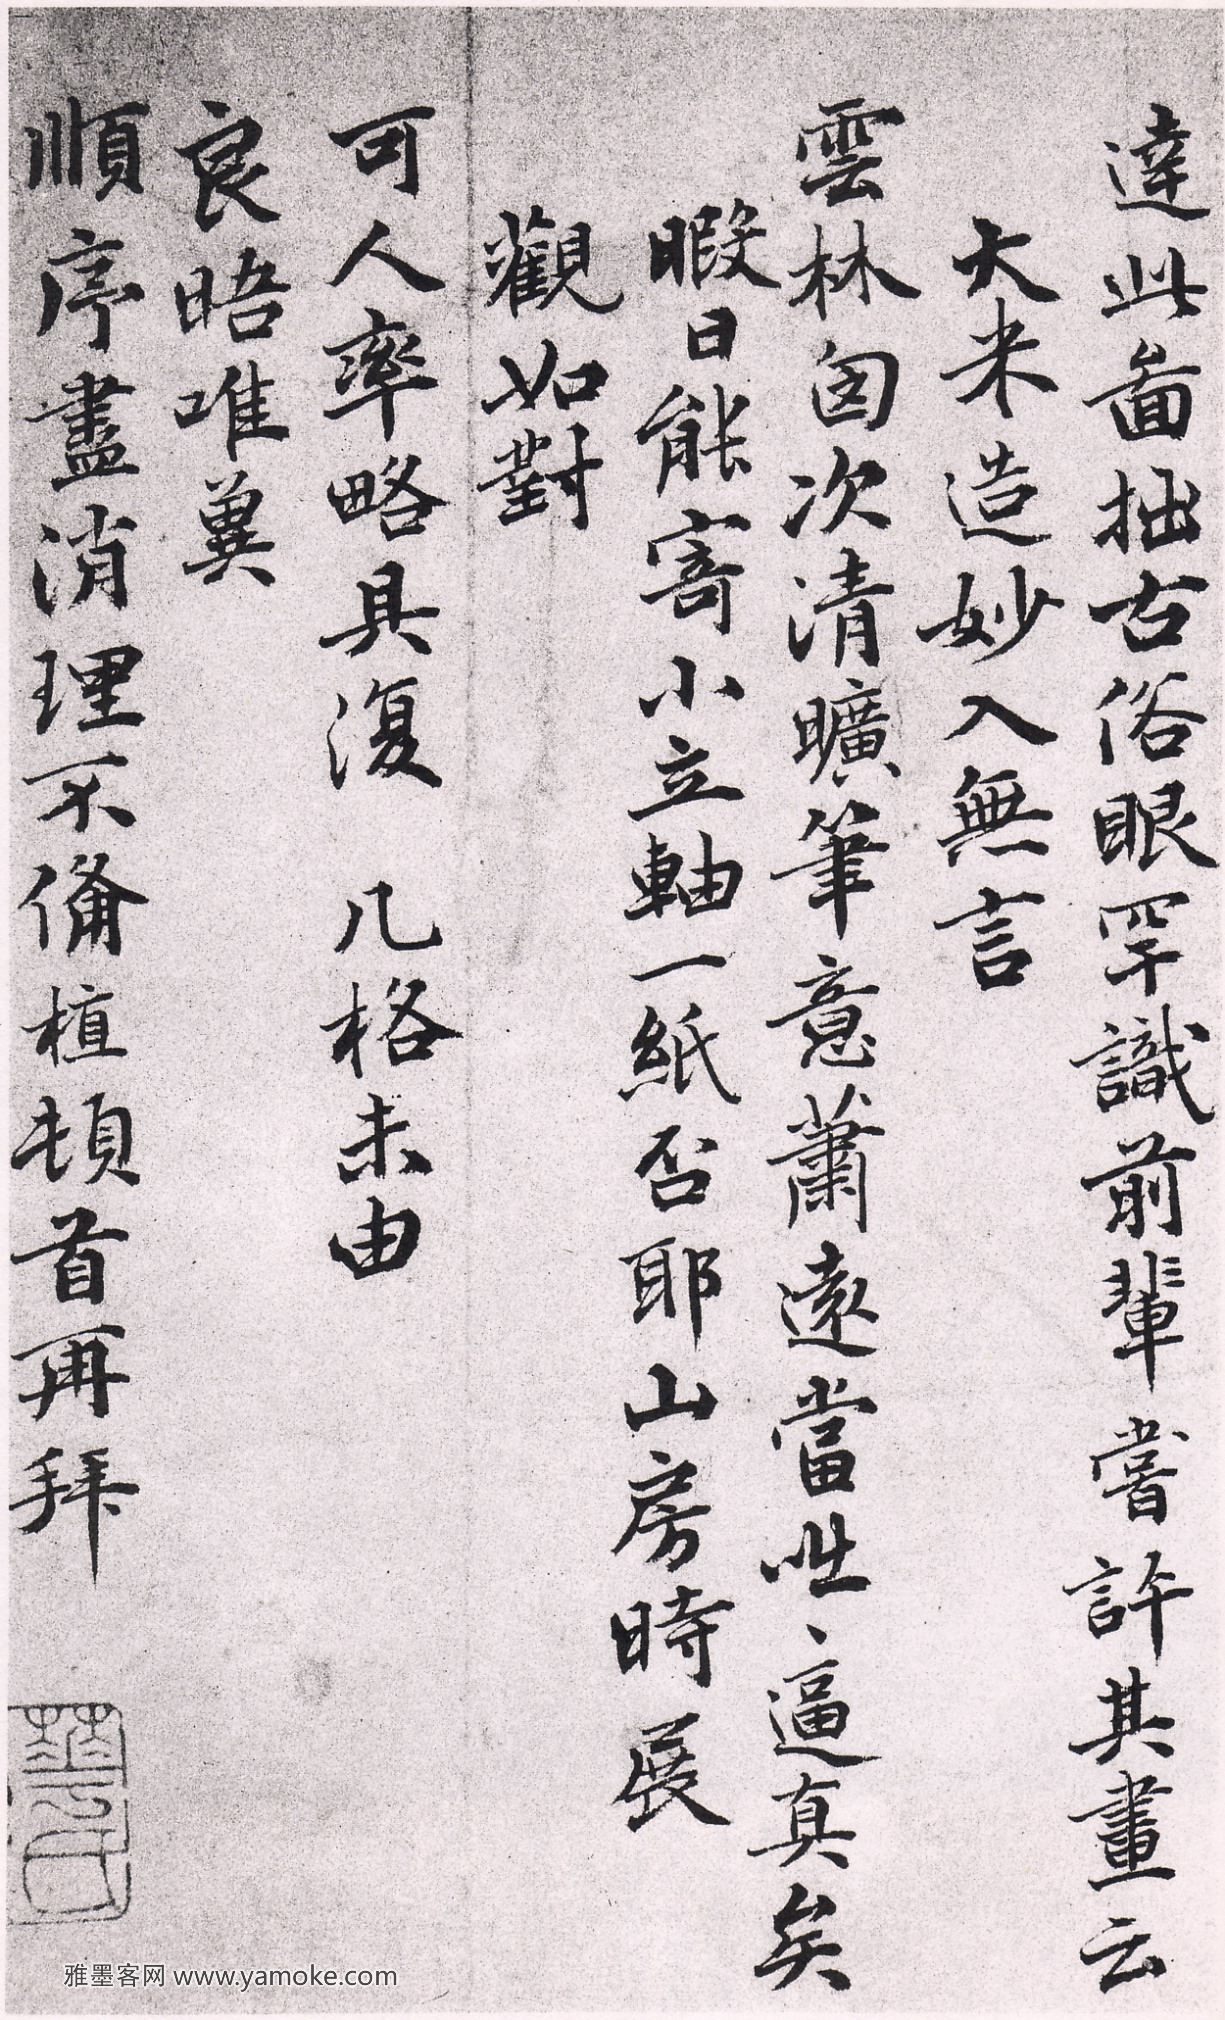 達此畵拙古俗眼罕識前輩嘗許其畫云
大米造妙入無言
雲林囪次清曠筆意蕭遠當咄、逼真矣
暇日能寄小立軸一紙否耶山房時展
觀如對
可人率略具復 几格未由
良晤唯冀
順序盡消理不備植頓首再拜
華氏
雅墨客网 www.yamoke.com